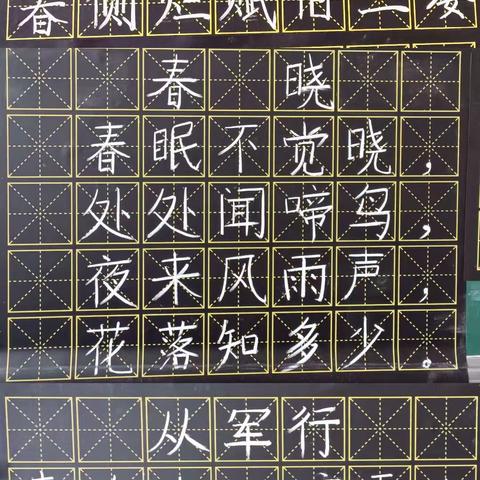 春晓
春眠不觉晓，
处处闻啼鸟，
夜来风雨声，
花落知多少。
从军行